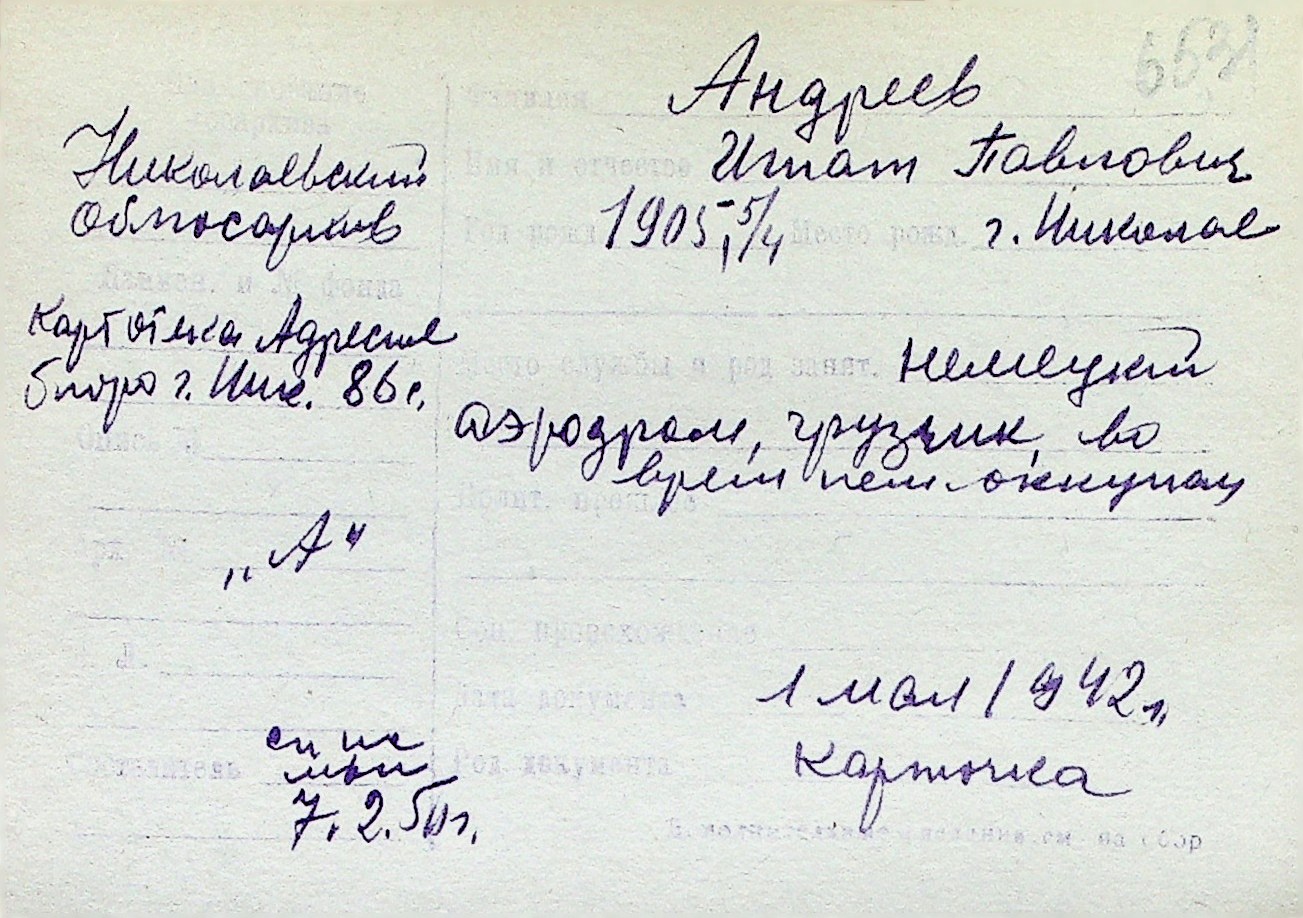 6531
Николаевский
Облгосархив
Назван. и № фонда
Картотека Адресное
бюро г. Ник. 86 с.
Опись №
„А“
7.2.50г.
Фамилия Андреев
Имя и отчество Игнат Павлович
Год рожд. 1905, 5/4 Место рожд. г. Николаев
Место службы и род занят. немецкий
аэродром, грузчик, во
время нем оккупац
Полит. прошлое
Соц. происхождение
Дата документа 1 мая 1942г.
Род документа Карточка
Дополнительные сведения см. на обор